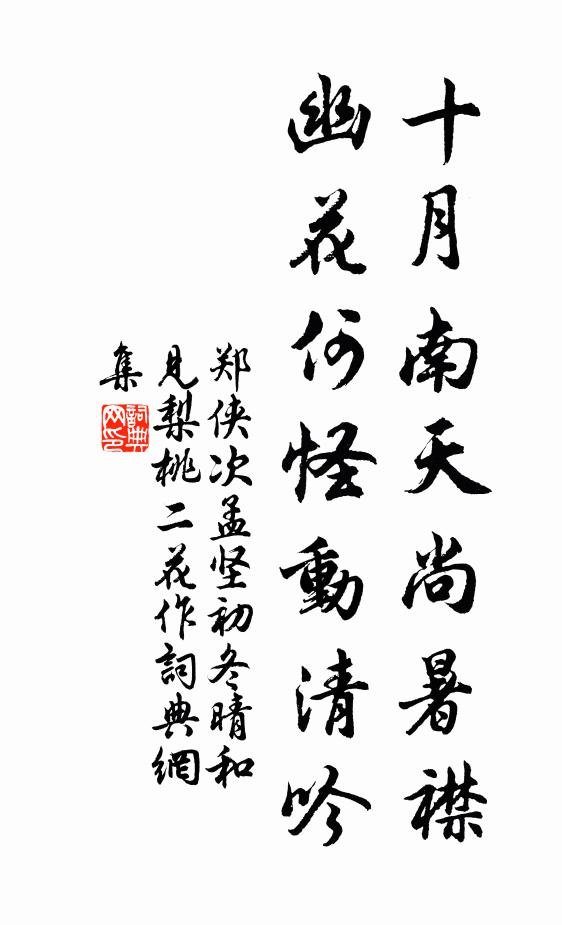 十月南天尚暑襟
幽花何怪動清吟
郑侠次孟坚初冬晴和
见梨桃二花作詞典網
集
詞典
网印